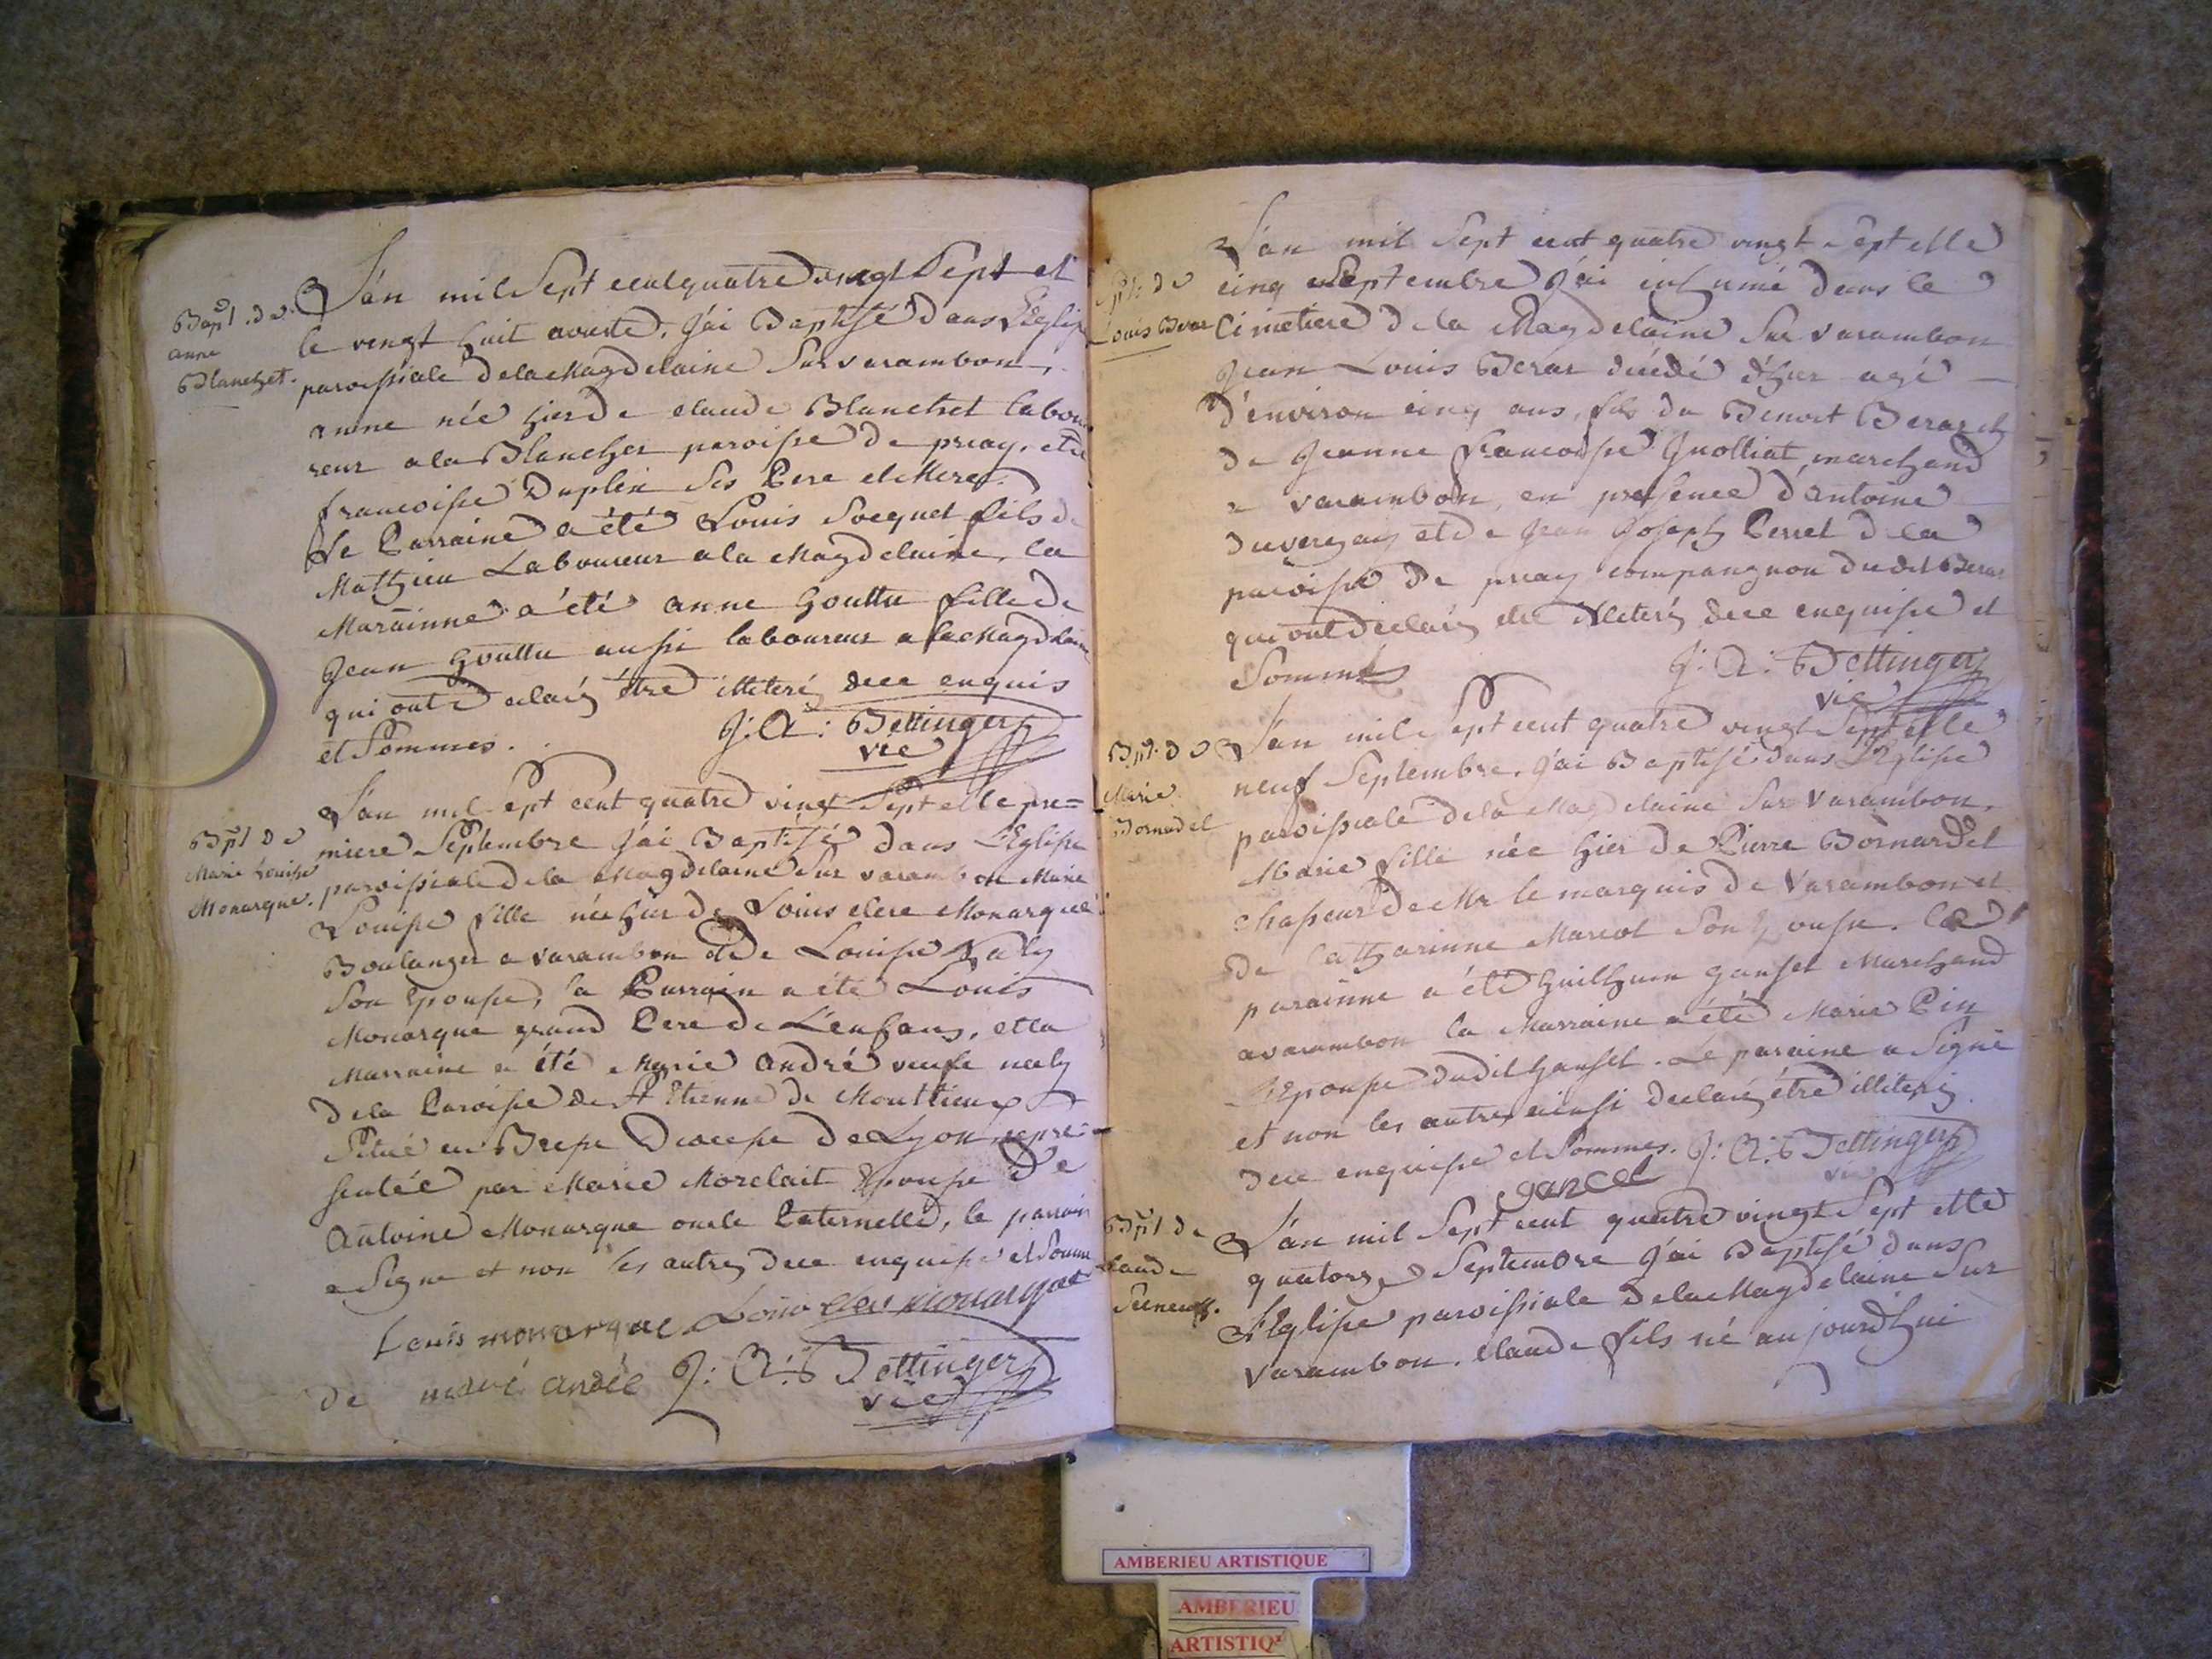 Bapt. de
anne
Blanchet.
L'an mil Sept cent quatre vingt Sept et
le vingt huit aouste, j'ai Baptisé dans L'Eglise
paroissiale dela Magdelaine Sur varambon,
anne née hier de claude Blanchet labou
reur a la Blancher paroisse de priay, et de
francoise Duplex Ses Pere et Mere.
Le Parraine a été Louis Socquet fils de
Mathieu Laboureur a la Magdelaine, la
Marainne a été anne Gouttu fille de
Jean Gouttu aussi laboureur a la Magdelaine
qui ont declaré être illiteré dece enquis
et Sommes.
J: A: Bettinger
vic
Bpt de
Marie Louise
Monarque.
L'an mil Sept cent quatre vingt Sept et le pre=
miere Septembre j'ai Baptisé dans L'Eglise
paroissiale de la Magdelaine Sur varambon Marie
Louise fille née hier de Louis clere Monarque
Boulanger a varambon et de Louise Naly
Son Epouse, la Parrain a été Louis
Monarque grand Pere de L'enfans, et la
Marraine a été Marie André veufe naly
dela Paroisse de St Etienne de Mouttieux
Situé en Bresse Diocese de Lyon repre=
sentée par Marie Morelait Epouse de
Antoine Monarque oncle Paternelle, le parrain
a Signe et non les autres dece enquise et Somme
Louis monarque Louis cler monarque
de marie andée J: A: Bettinger
vic
Spt: de
Louis Berar
L'an mil Sept cent quatre vingt Sept et le
cinq Septembre j'ai inhumé dans le
Cimetiere de la Magdelaine Sur varambon
Jean Louis Berar décédé d'hier agé
d'environ cinq ans, fils de Benoit Berar et
de Jeanne Francoise Juolliat, marchand
a varambon, en presence d'Antoine
Duverger et de Jean Joseph Perret de la
paroisse de priay compangnon dudit Berar
qui ont declaré etre illiteré dece enquise et
Sommés
J: A: Bettinger
vic
Bpt. de
Marie
Bornardel
L'an mil Sept cent quatre vingt Sept et le
neuf Septembre, j'ai Baptisé dans L'Eglise
paroissiale dela Magdelaine Sur Varambon,
Marie fille née hier de Pierre Bornardel
chasseur de Mr le marquis de Varambon et
de Catharinne Marcot Son Epouse. la
parainne a été Guilhaum Gansel Marchand
a varambon la Marraine a été Marie Pin
Epouse dudit Gansel. Le paraine a Signé
et non les autres ainsi declaré être illiteré
dece enquise et Sommes. J: A: Bettinger
gancel
vic
Bpt de
claude
L'an mil Sept cent quatre vingt Sept et le
quatorze Septembre j'ai Baptisé dans
L'Eglise paroissiale dela Magdelaine Sur
Varambon. claude fils né aujourdhui
AMBERIEU ARTISTIQUE
AMBERIEU
ARTISTIQ